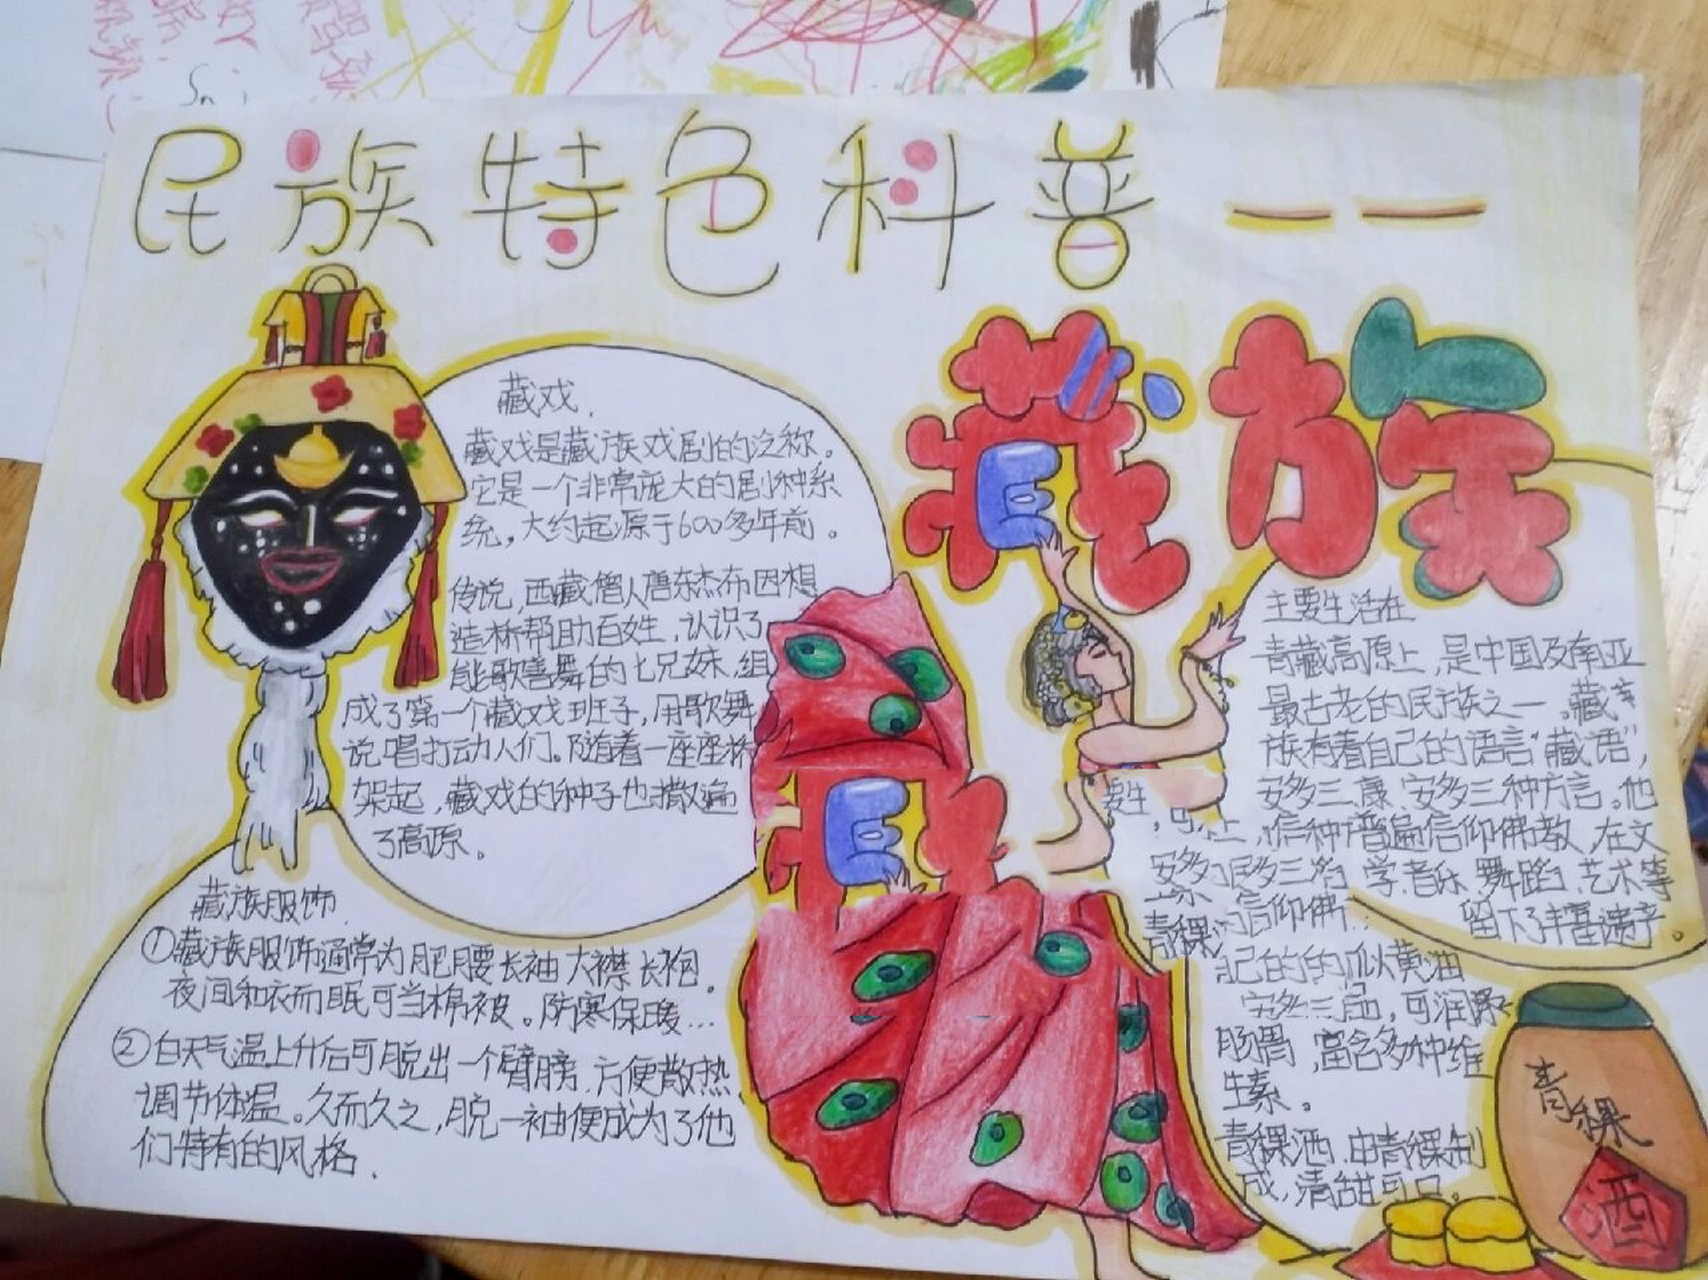 民族特色科普——
藏族
藏戏
藏戏是藏族戏剧的泛称。
它是一个非常庞大的剧种系
统，大约起源于600多年前。
传说，西藏僧人唐东杰布因想
造桥帮助百姓，认识了
能歌善舞的七兄妹，组
成了第一个藏戏班子，用歌舞
说唱打动人们。随着一座座桥
架起，藏戏的种子也撒遍
了高原。
藏族服饰
①藏族服饰通常为肥腰长袖大襟长袍。
夜间和衣而眠可当棉被。防寒保暖…
②白天气温上升后可脱出一个臂膀，方便散热
调节体温。久而久之，脱一袖便成为了他
们特有的风格.
主要生活在
青藏高原上，是中国及南亚
最古老的民族之一。藏
族有着自己的语言“藏语”，
安多三康、安多三种方言。他
普遍信仰佛教，在文
学音乐、舞蹈、艺术等
留下了丰富遗产。
青稞
信仰佛
己的的
黄油
可润
肠胃，富含多种维
生素。
青稞酒，由青稞制
成，清甜可口。
青稞
酒